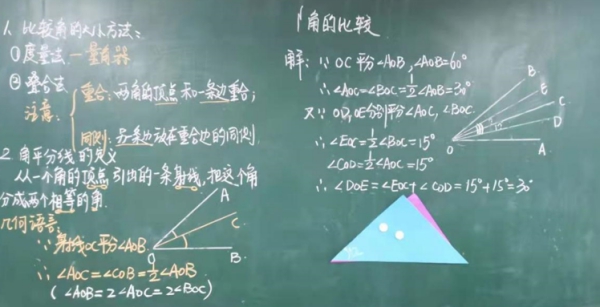 1. 比较角的大小方法：
①度量法 — 量角器
②叠合法
注意：
重合：两角的顶点和一条边重合；
同侧：另条边放在重合边的同侧
2. 角平分线的定义
从一个角的顶点引出的一条射线，把这个角
分成两个相等的角.
几何语言：
∵ 射线OC平分∠AOB
∴ ∠AOC=∠COB=½∠AOB
(∠AOB=2∠AOC=2∠BOC)
A
C
B
O
角的比较
解：∵ OC平分∠AOB，∠AOB=60°
∴ ∠AOC=∠BOC=½∠AOB=30°
又∵ OD,OE分别平分∠AOC，∠BOC.
∴ ∠EOC=½∠BOC=15°
∠COD=½∠AOC=15°
∴ ∠DOE=∠EOC+∠COD=15°+15°=30°
B
E
C
D
A
O